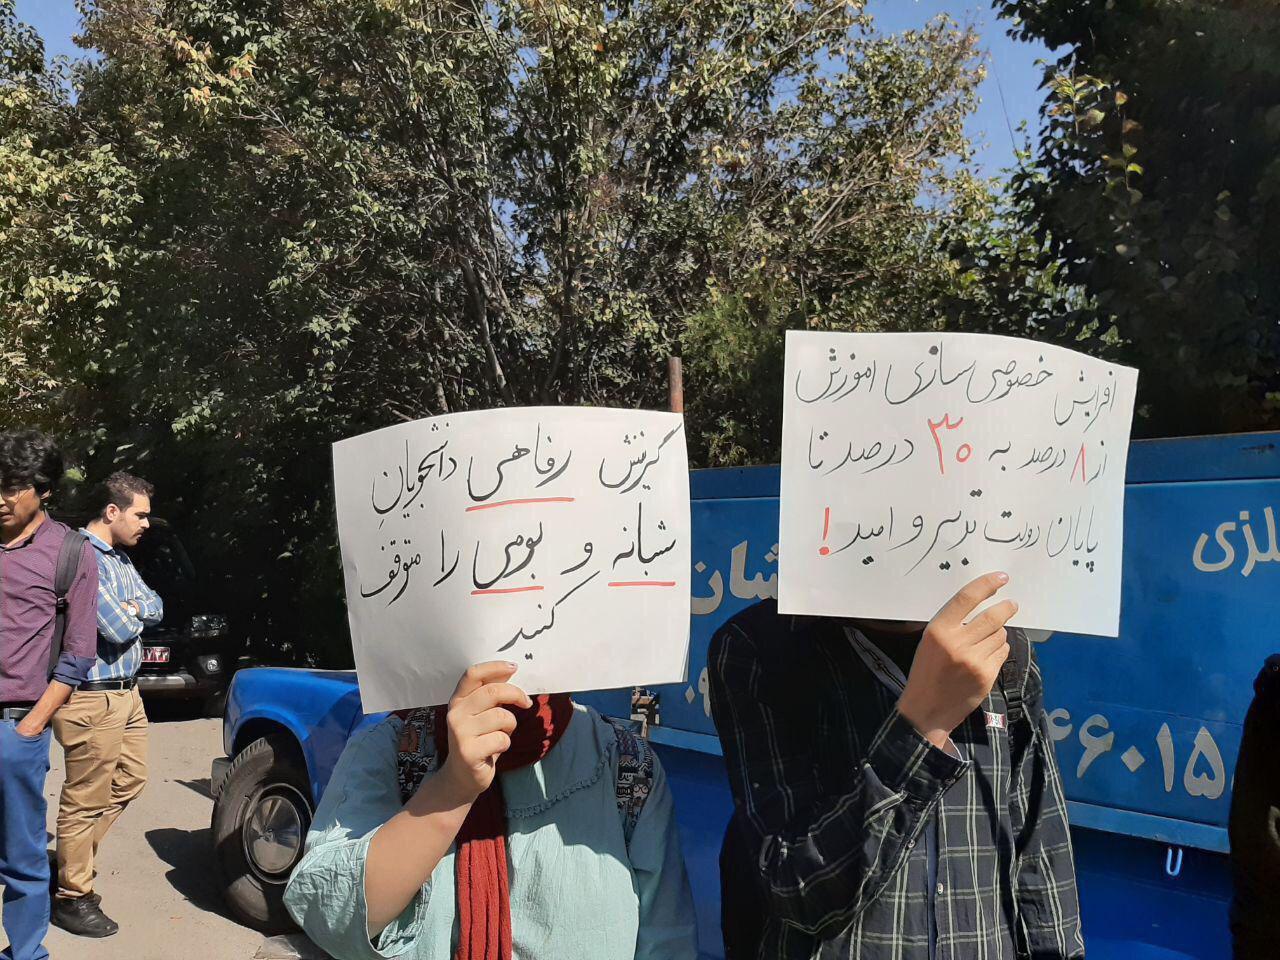 افزایش خصوصی سازی اموزش
از ۸ درصد به ۳۰ درصد تا
پایان دولت تدبیر و امید!
گزینش رفاهی دانشجویانِ
شبانه و بومی را متوقف
کنید
شان
لزی
۴۶۰۱۵